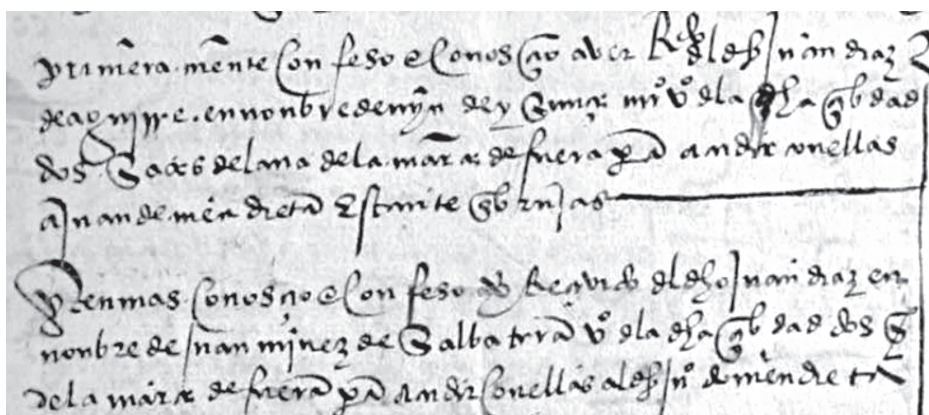 primera mente confeso e conosçio aver Rdo del dho juan diaz
de aguirre en nonbre de myn de y mro vo de la dha çibdad
dos sacas de lana de la marca de fuera pa andar con ellas
a juan de mendieta estante en brujas
yten mas conosçio e confeso aver Reçivido del dho juan diaz en
nonbre de juan minez de salbaterra vo de la dha çibdad dos s
de la marca de fuera pa andar con ellas al dho juo de mendieta